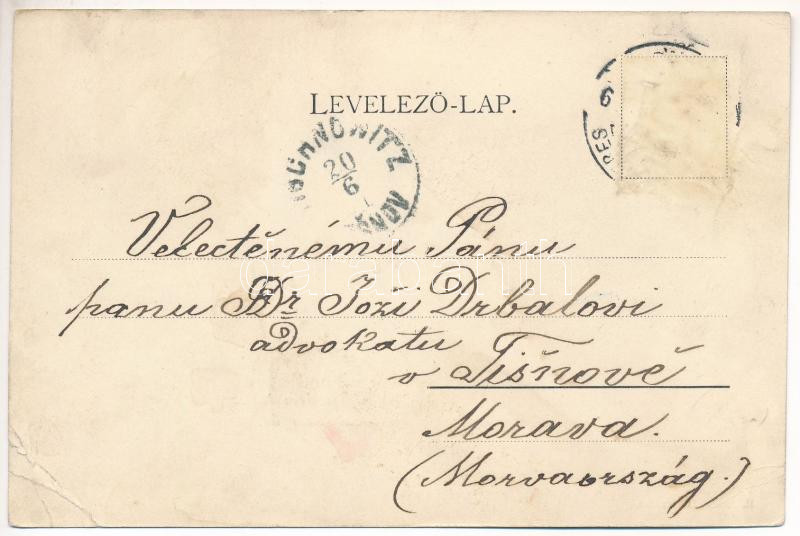 LEVELEZŐ-LAP.
6
PES
TISCHNOWITZ
20
6
TIŠNOV
Velectěnému Pánu
panu Dr Joži Drbalovi
advokatu
v Tišnově
Morava.
(Morvaország.)
darabanth